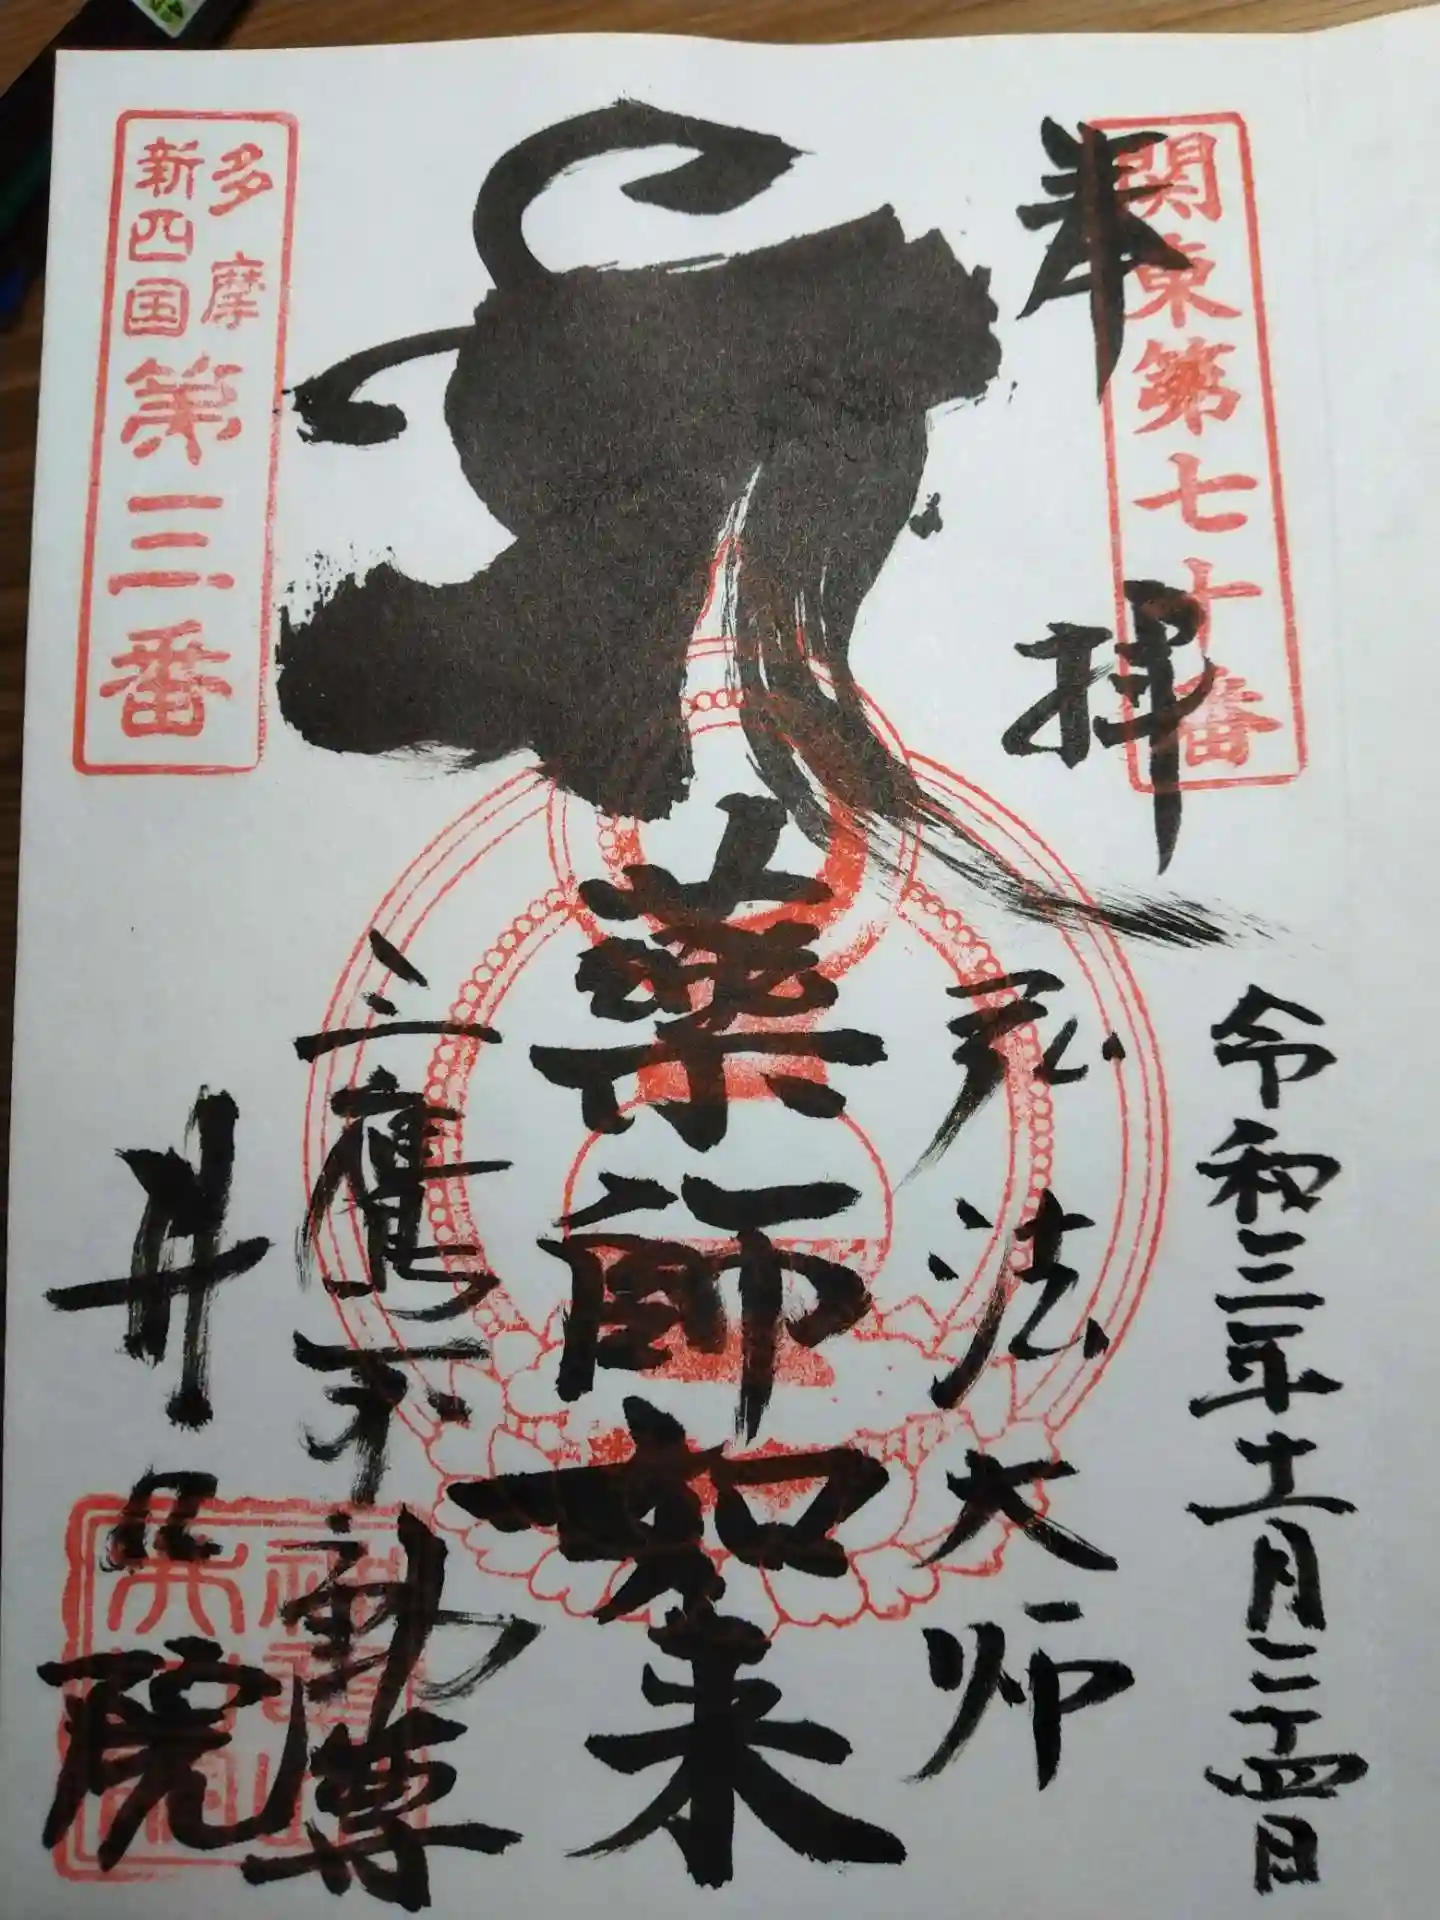 関東第七十番
奉拝
令和三年十一月二十四日
弘法大師
薬師如来
三鷹不動尊
井口院
多摩
新四国
第三番